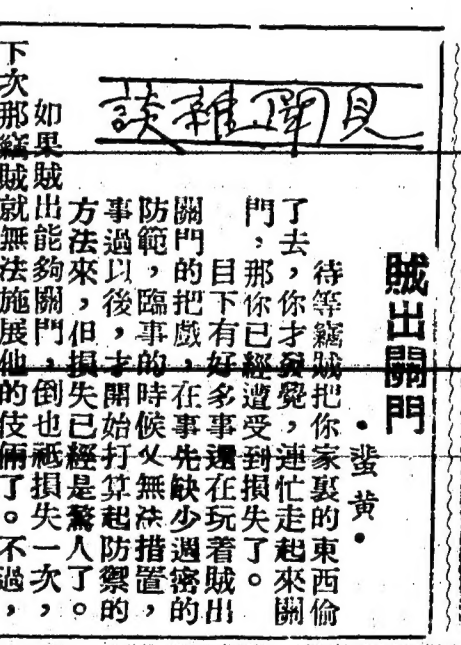 見聞雜談
賊出關門
•蜚黃•
待等竊賊把你家裏的東西偷
了去,你才發覺,連忙走起來關
門,那你已經遭受到損失了。
目下有好多事還在玩着賊出
關門的把戲,在事先缺少週密的
防範,臨事的時候又無法措置,
事過以後,才開始打算起防禦的
方法來,但損失已經是驚人了。
如果賊出能夠關門,倒也祗損失一次,
下次那竊賊就無法施展他的伎倆了。不過,